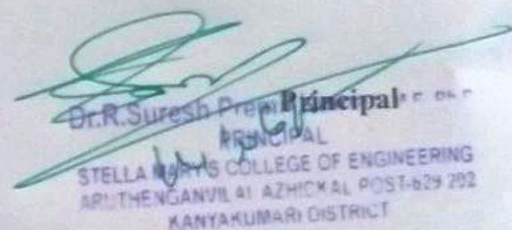 Dr.R.Suresh Prem Principal
PRINCIPAL
STELLA MARY'S COLLEGE OF ENGINEERING
ARUTHENGANVILAI AZHICKAL POST-629 202
KANYAKUMARI DISTRICT